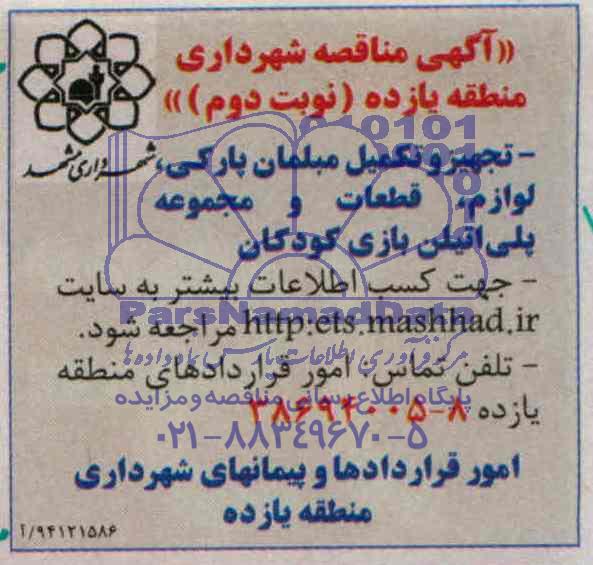 «آگهی مناقصه شهرداری
منطقه یازده (نوبت دوم)»
شهرداری مشهد
- تجهیز و تکمیل مبلمان پارکی،
لوازم، قطعات و مجموعه
پلی‌اتیلن بازی کودکان
- جهت کسب اطلاعات بیشتر به سایت
http:ets.mashhad.ir مراجعه شود.
- تلفن تماس: امور قراردادهای منطقه
یازده ۸-۳۸۶۹۴۰۰۵
امور قراردادها و پیمانهای شهرداری
منطقه یازده
۹۴۱۲۱۵۸۶/آ
ParsNamadData
مرکز فرآوری اطلاعات پارس نماد داده ها
پایگاه اطلاع رسانی مناقصه و مزایده
۰۲۱-۸۸۳۴۹۶۷۰-۵